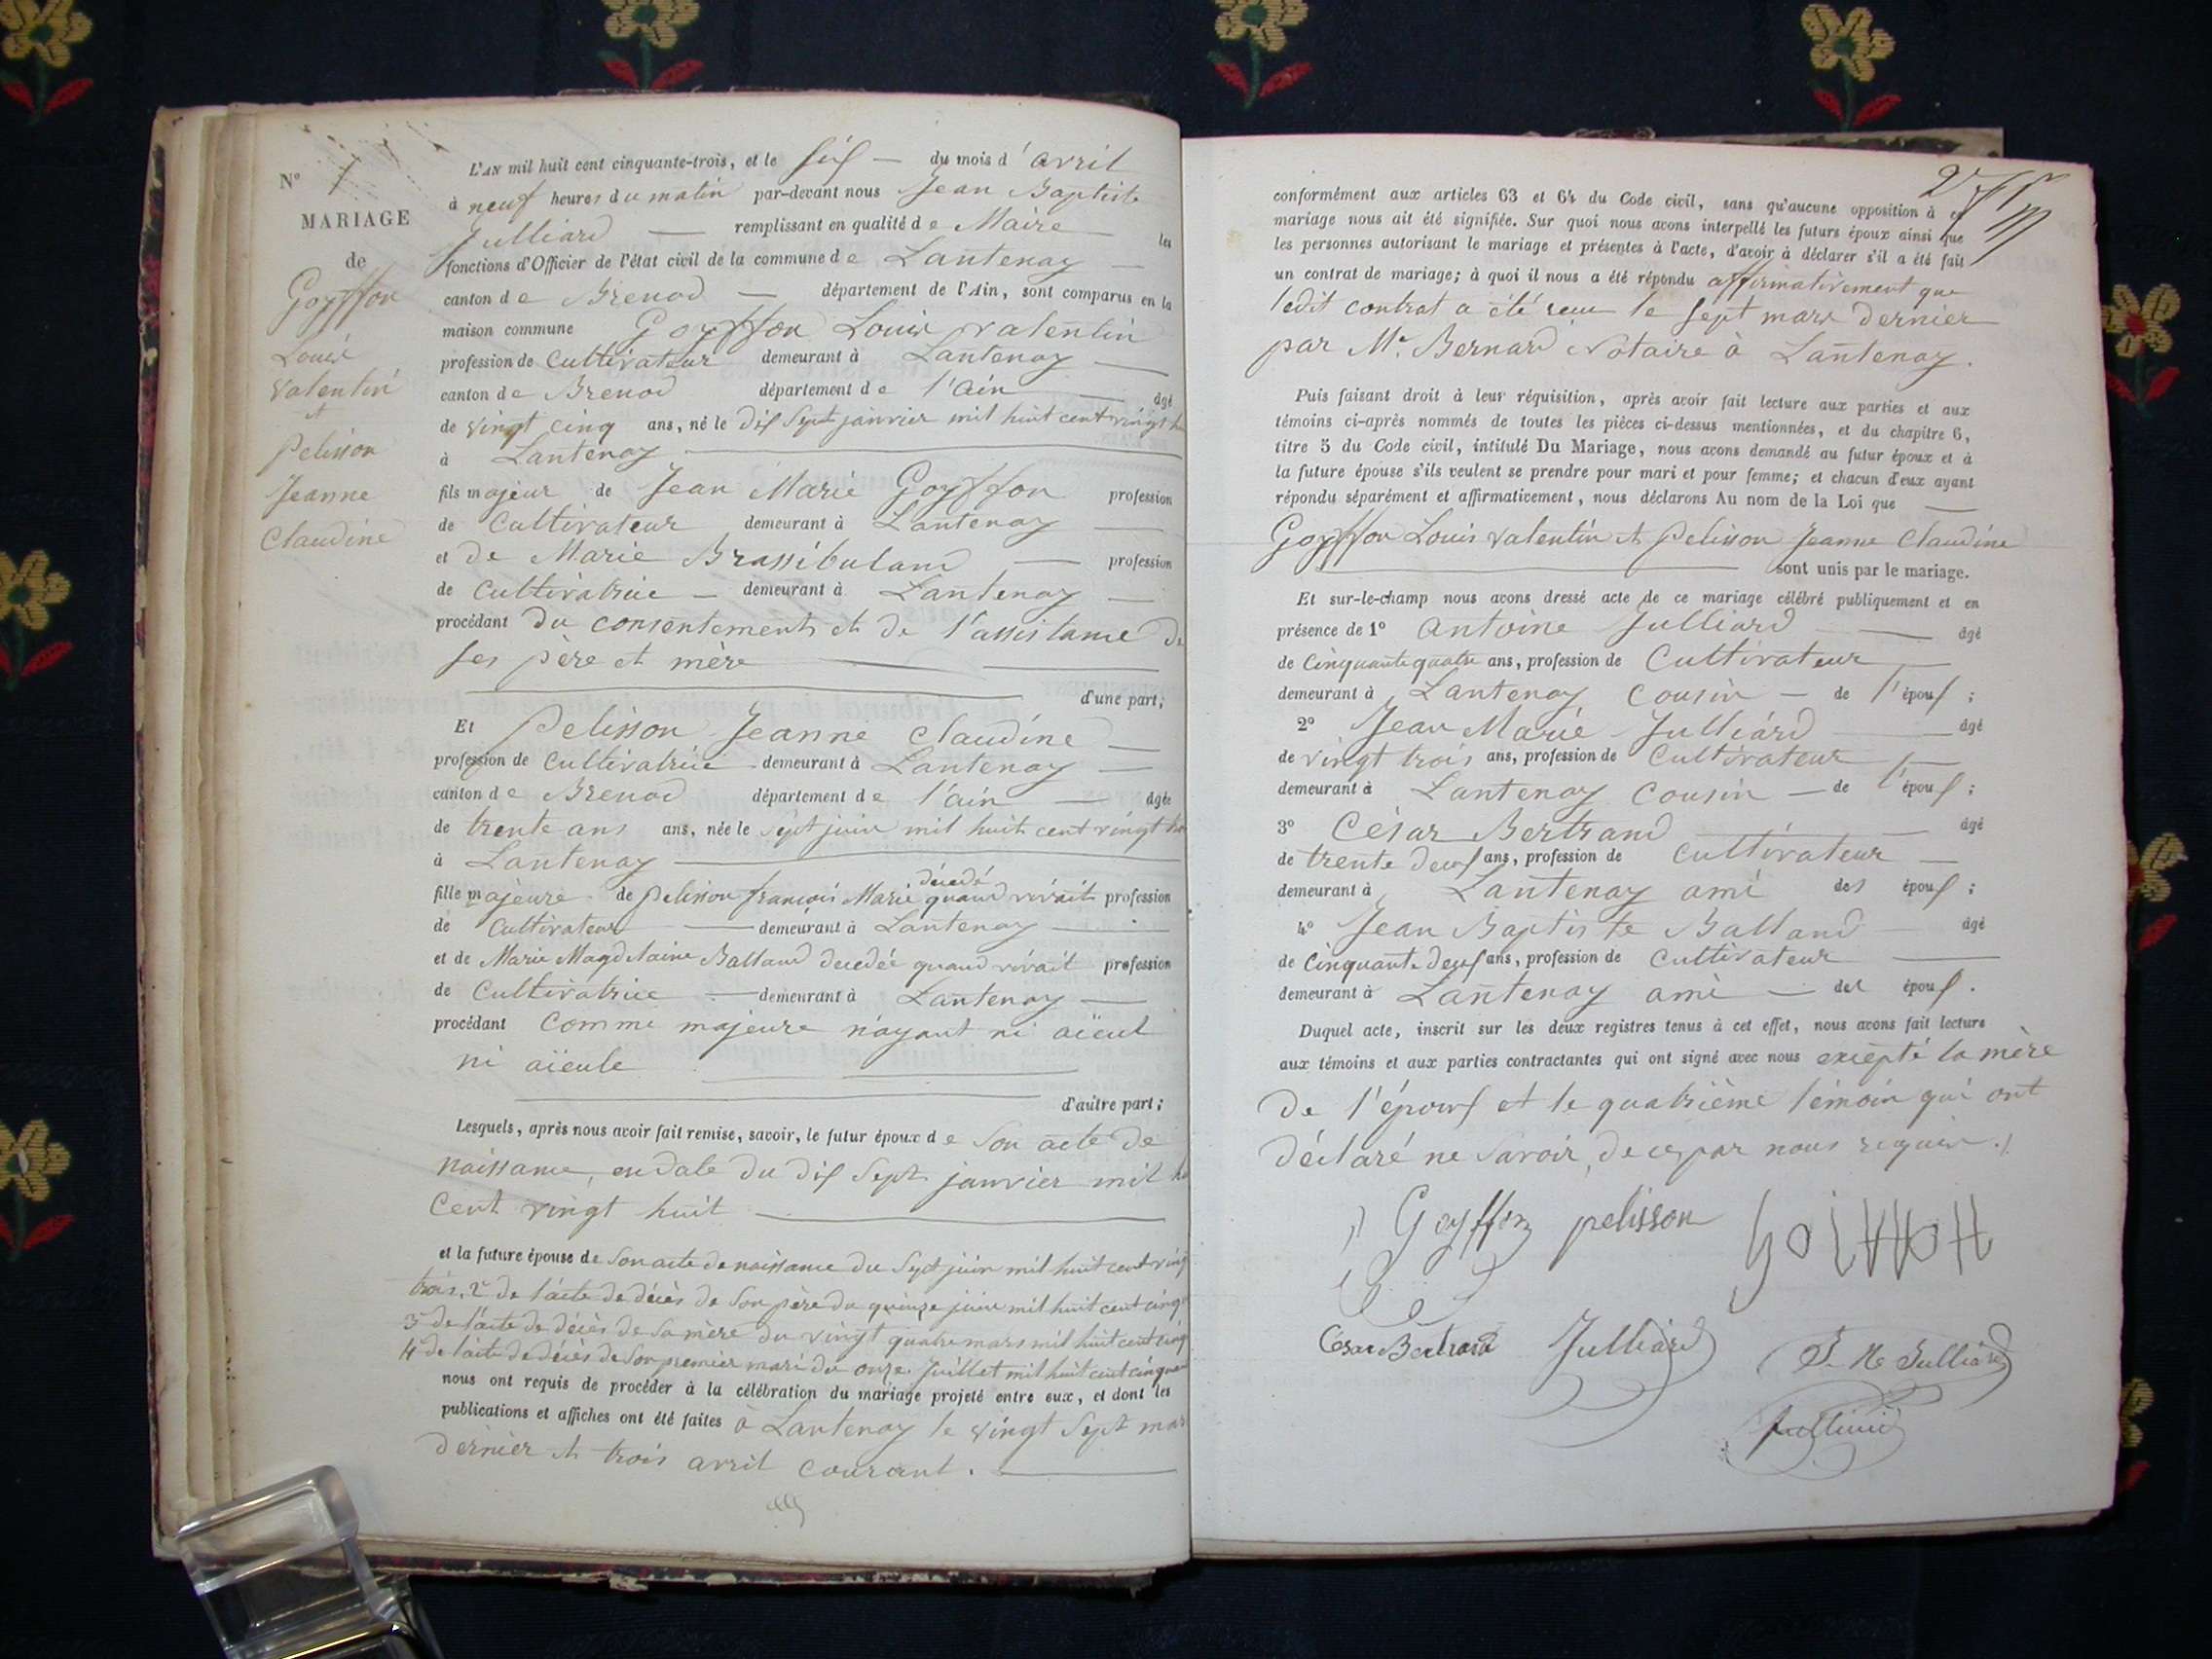 N° 1
MARIAGE
de
Goyffon
Louis
Valentin
et
Pelisson
Jeanne
Claudine
L'AN mil huit cent cinquante-trois, et le six du mois d'avril
à neuf heures du matin par-devant nous Jean Baptiste
Julliard remplissant en qualité de Maire les
fonctions d'Officier de l'état civil de la commune de Lantenay
canton de Brenod département de l'Ain, sont comparus en la
maison commune Goyffon Louis valentin
profession de Cultivateur demeurant à Lantenay
canton de Brenod département de l'ain âgé
de vingt cinq ans, né le dix sept janvier mil huit cent vingt
à Lantenay
fils majeur de Jean Marie Goyffon profession
de Cultivateur demeurant à Lantenay
et de Marie Brassibuland profession
de Cultivatrice demeurant à Lantenay
procédant du consentement et de l'assistance de
ses père et mère
d'une part;
Et Pelisson Jeanne Claudine
profession de Cultivatrice demeurant à Lantenay
canton de Brenod département de l'ain âgée
de trente ans ans, née le sept juin mil huit cent vingt
à Lantenay
décédé
fille majeure de pelisson françois Marie quand vivait profession
de Cultivateur demeurant à Lantenay
et de Marie Magdelaine Balland decedée quand vivait profession
de Cultivatrice demeurant à Lantenay
procédant comme majeure n'ayant ni aïeul
ni aïeule
d'autre part;
Lesquels, après nous avoir fait remise, savoir, le futur époux de Son acte de
naissance, en date du dix Sept janvier mil
Cent vingt huit
et la future épouse de Son acte de naissance du Sept juin mil huit cent vingt
trois, 2° de l'acte de décès de Son père du quinze juin mil huit cent cinq
3° de l'acte de décès de Sa mère du vingt quatre mars mil huit cent cinq
4° de l'acte de décès de Son premier mari du onze Juillet mil huit cent cinquan
nous ont requis de procéder à la célébration du mariage projeté entre eux, et dont les
publications et affiches ont été faites à Lantenay le vingt Sept mar
dernier et trois avril courant.
conformément aux articles 63 et 64 du Code civil, sans qu'aucune opposition à ce
mariage nous ait été signifiée. Sur quoi nous avons interpellé les futurs époux ainsi que
les personnes autorisant le mariage et présentes à l'acte, d'avoir à déclarer s'il a été fait
un contrat de mariage; à quoi il nous a été répondu affirmativement que
ledit contrat a été reçu le sept mars dernier
par Me Bernard Notaire à Lantenay.
Puis faisant droit à leur réquisition, après avoir fait lecture aux parties et aux
témoins ci-après nommés de toutes les pièces ci-dessus mentionnées, et du chapitre 6,
titre 5 du Code civil, intitulé Du Mariage, nous avons demandé au futur époux et à
la future épouse s'ils veulent se prendre pour mari et pour femme; et chacun d'eux ayant
répondu séparément et affirmativement, nous déclarons Au nom de la Loi que
Goyffon Louis valentin et pelisson Jeanne Claudine
sont unis par le mariage.
Et sur-le-champ nous avons dressé acte de ce mariage célébré publiquement et en
présence de 1° antoine Julliard âgé
de Cinquante quatre ans, profession de Cultivateur
demeurant à Lantenay cousin de l'époux;
2° Jean Marie Julliard âgé
de vingt trois ans, profession de Cultivateur
demeurant à Lantenay cousin de l'époux;
3° César Bertrand âgé
de trente deux ans, profession de cultivateur
demeurant à Lantenay ami des époux;
4° Jean Baptiste Balland âgé
de Cinquante deux ans, profession de Cultivateur
demeurant à Lantenay ami des époux.
Duquel acte, inscrit sur les deux registres tenus à cet effet, nous avons fait lecture
aux témoins et aux parties contractantes qui ont signé avec nous excepté la mère
de l'époux et le quatrième témoin qui ont
déclaré ne Savoir, de ce par nous requis.
Goyffon pelisson
César Bertrand Julliard J. M. Julliard